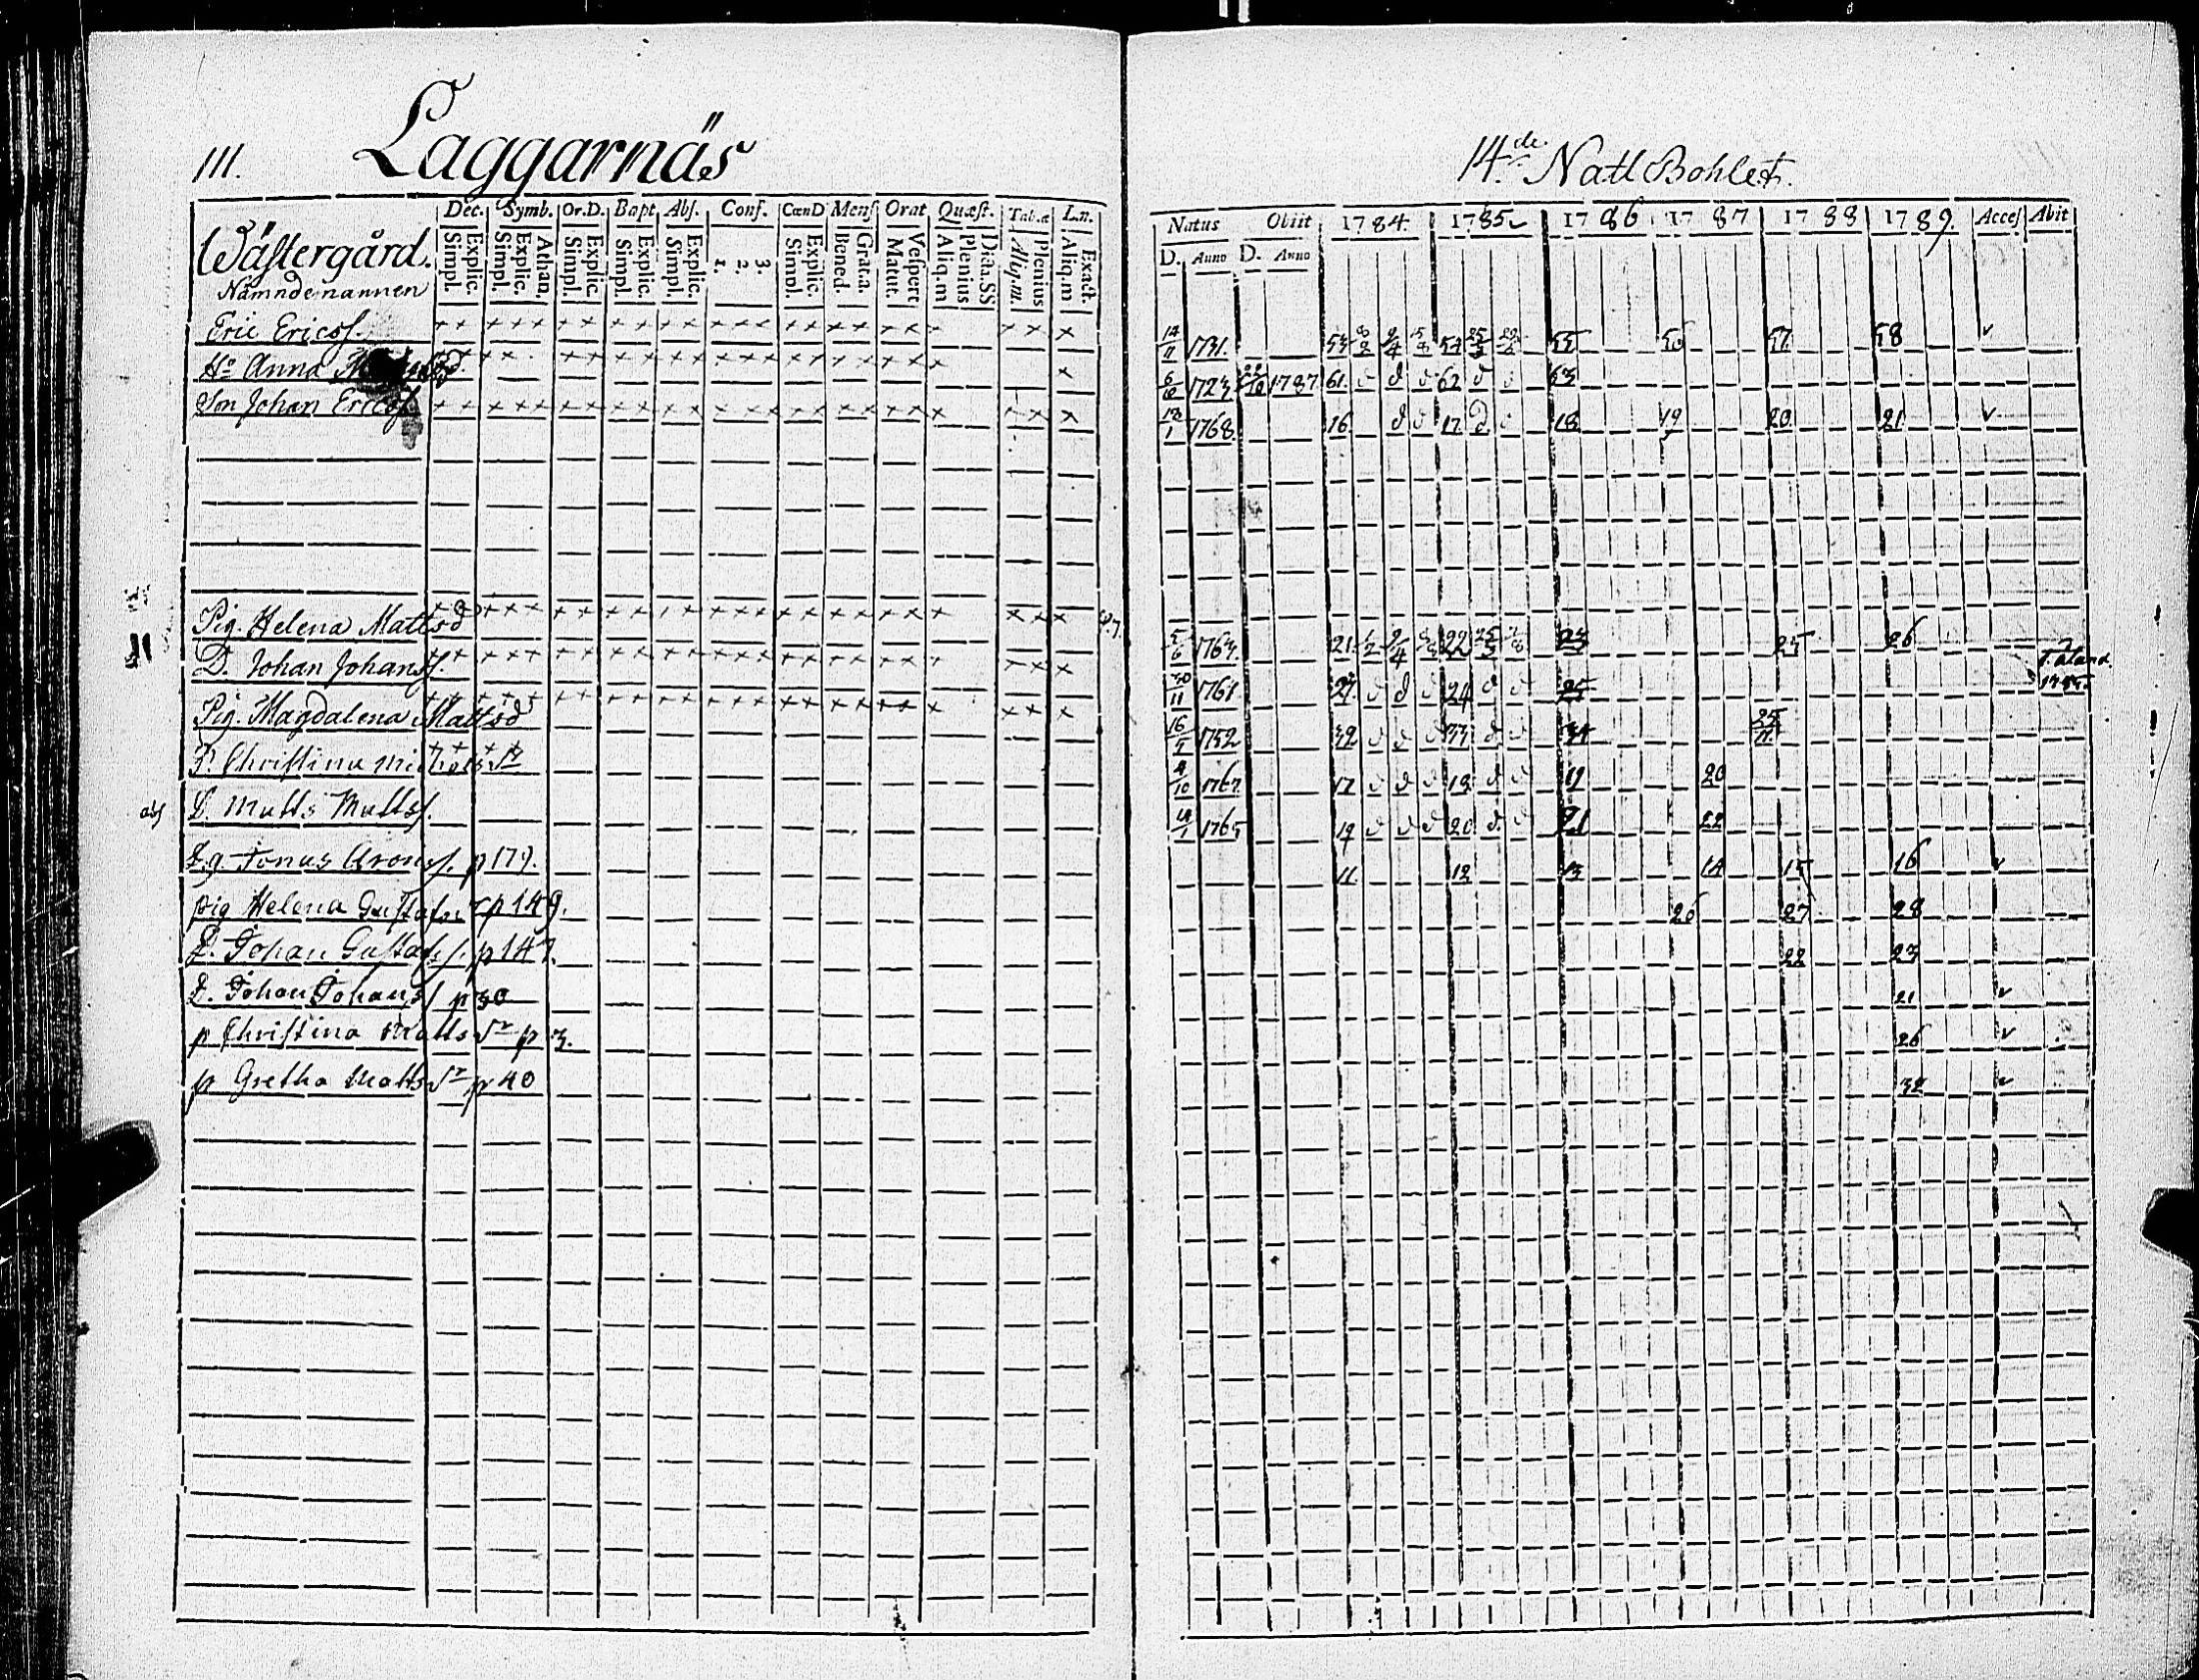 111. Laggarnäs
14de Natl Bohlet.
Dec. Symb. Or.D. Bapt. Abs. Conf. CœnD Mens Orat Quæst. Tab.æ L.n.
Simpl. Explic. Simpl. Explic. Athan. Simpl. Explic. Simpl. Explic. Simpl. Explic. 1. 2. 3. Simpl. Explic. Bened. Grat.a. Matut. Vespert Aliq.m Plenius Dicta.SS Aliq.m. Plenius Aliq.m Exact.
Natus Obiit 1784. 1785 1786 1787 1788 1789. Acces Abit
D. Anno D. Anno
Wästergård.
Nämndemannen
Eric Ericss. 14/11 1731. 53 54 55 56 57 58
H:o Anna 6/10 1723 1787 61. 62 63
Son Johan Ericss. 1768. 16 17 18 19 20 21
Pig. Helena Mattsd 5/6 1763. 21 22 23 25 26
D. Johan Johanss. 30/11 1761 24 25
Pig. Magdalena Mattsd 16/5 1752 32 33 34 25/11
P. Christina 4/10 1767 17 18 19 20
D. Matts Mattss. 1765 19 20 21 22
Jonas Aronss. p 179. 11 12 13 14 15 16
pig Helena p 149. 26 27 28
D. Johan Gustafss. p 147. 22 23
D. Johan Johanss p 30 21
p Christina Matts p 3. 26
p Gretha Matts p 40 32